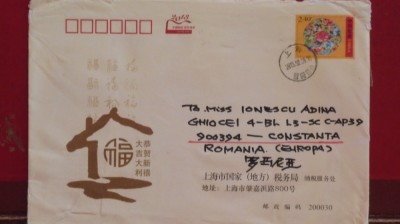 2.40
TO MISS IONESCU ADINA
GHIOCEI 4-BL L3-SC C-AP39
900394 — CONSTANTA
ROMANIA (EUROPA)
罗马尼亚
福
恭贺新禧
大吉大利
上海市国家(地方)税务局 纳税服务处
地址:上海市肇嘉浜路800号
邮政编码 200030